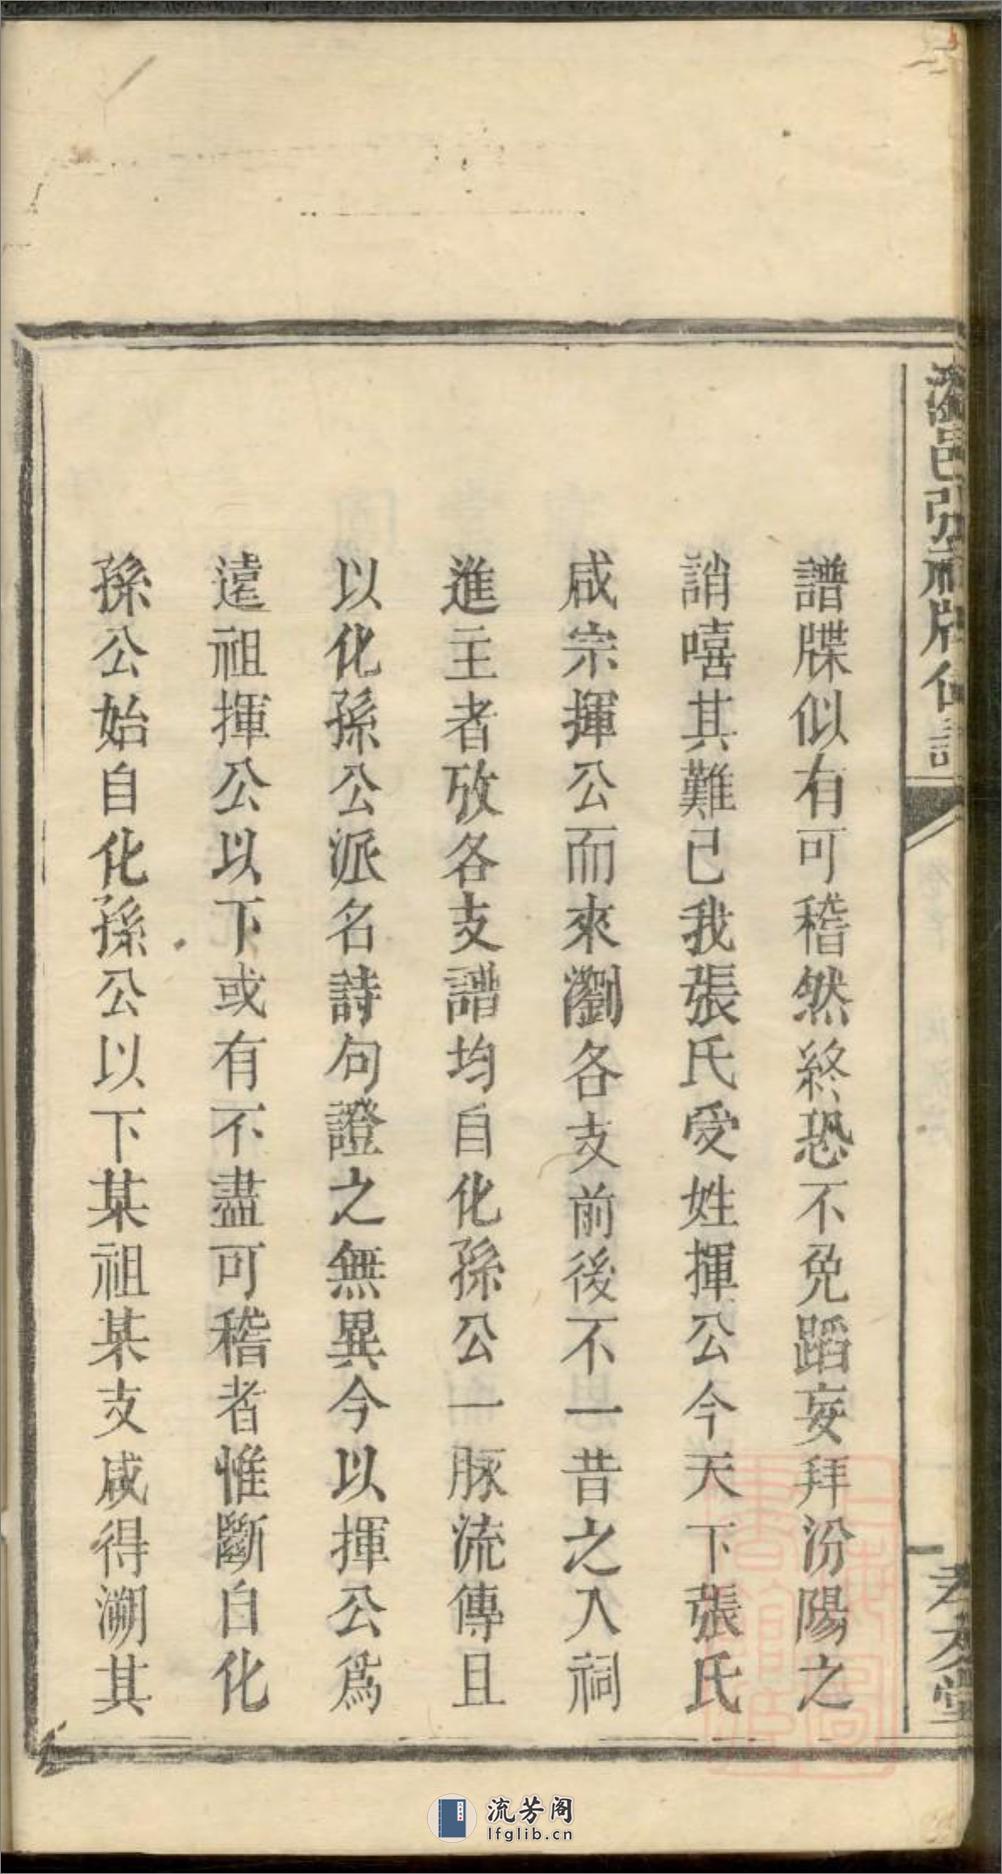 譜牒似有可稽然終恐不免蹈妄拜汾陽之
誚嘻其難已我張氏受姓揮公今天下張氏
咸宗揮公而來瀏各支前後不一昔之入祠
進主者攷各支譜均自化孫公一脉流傳且
以化孫公派名詩句證之無異今以揮公為
遠祖揮公以下或有不盡可稽者惟斷自化
孫公始自化孫公以下某祖某支咸得溯其
流芳阁
lfglib.cn